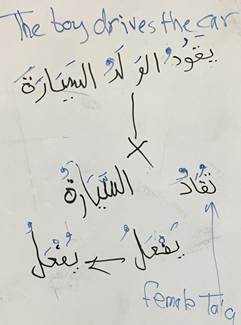 The boy drives the car
يَقُودُ الوَلَدُ السَيَارَةَ
تُقَادُ السَّيَارَةُ
يَفْعَلُ ← يُفْعَلُ
female Ta'a